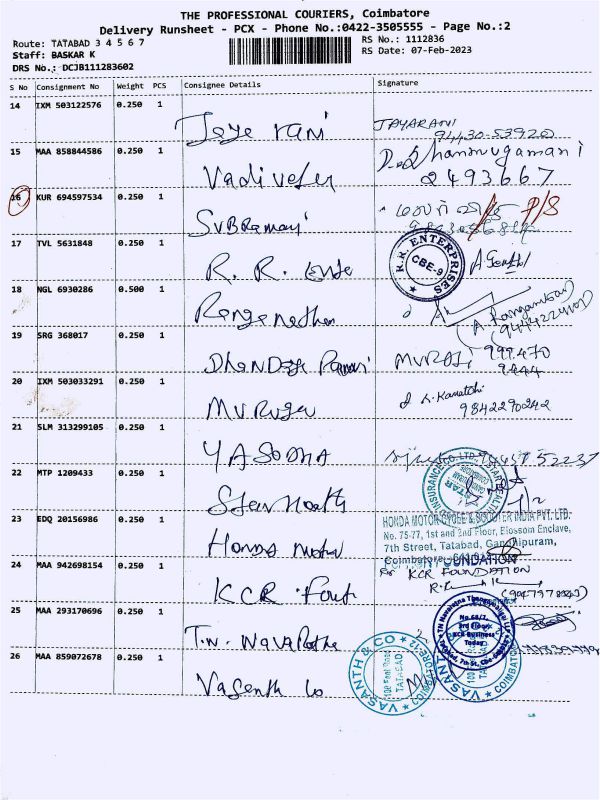 THE PROFESSIONAL COURIERS, Coimbatore
Delivery Runsheet - PCX - Phone No.:0422-3505555 - Page No.:2
Route: TATABAD 3 4 5 6 7
RS No.: 1112836
Staff: BASKAR K
RS Date: 07-Feb-2023
DRS No.: DCJB111283602
S No Consignment No Weight PCS Consignee Details Signature
14 IXM 503122576 0.250 1
Jeye rani JAYARANI
94430-53920
15 MAA 858844586 0.250 1
Vadivelu Shanmugamani
2493667
16 KUR 694597534 0.250 1
Subramani P/S
17 TVL 5631848 0.250 1
R. R. Ente R.R. ENTERPRISES CBE-9
18 NGL 6930286 0.500 1
Renganathan A. Ranganathan
19 SRG 368017 0.250 1
MURALI 999470
9444
20 IXM 503033291 0.250 1
Muruga K. Kamatchi
9842290242
21 SLM 313299105 0.250 1
YASODHA
22 MTP 1209433 0.250 1
Star Health
23 EDQ 20156986 0.250 1
Honda Motor
HONDA MOTORCYCLE & SCOOTER INDIA PVT. LTD.
No. 75-77, 1st and 2nd Floor, Blossom Enclave,
7th Street, Tatabad, Gandhipuram,
Coimbatore
24 MAA 942698154 0.250 1
KCR Foun For KCR FOUNDATION
25 MAA 293170696 0.250 1
T.N. Nava
No.68/7,
3rd Floor,
KCR Business
Tatabad, 7th St, Cbe
26 MAA 859072678 0.250 1
Vasenth Co
VASANTH & CO
100 Feet Road
TATABAD
COIMBATORE-12